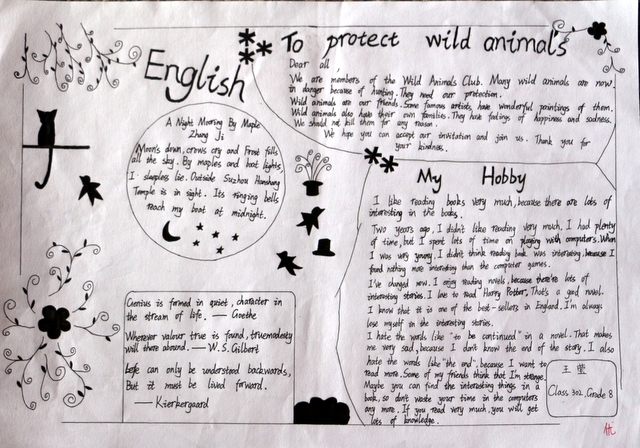 English
To protect wild animals
Dear all,
We are members of the Wild Animals Club. Many wild animals are now
in danger because of hunting. They need our protection.
Wild animals are our friends. Some famous artists have wonderful paintings of them.
Wild animals also have their own families. They have feelings of happiness and sadness.
We should not kill them for any reason.
We hope you can accept our invitation and join us. Thank you for
your kindness.
A Night Mooring By Maple
Zhang Ji
Moon's down, crows cry and Frost fills
all the sky. By maples and boat lights,
I sleepless lie. Outside Suzhou Hanshang
Temple is in sight. Its ringing bells
reach my boat at midnight.
My Hobby
I like reading books very much, because there are lots of
interesting in the books.
Two years ago, I didn't like reading very much. I had plenty
of time, but I spent lots of time on playing with computers. When
I was very young, I didn't think reading book was interesting, because I
found nothing more interesting than the computer games.
I've changed now. I enjoy reading novels, because there're lots of
interesting stories. I love to read Harry Potter. That's a good novel.
I know that it is one of the best-sellers in England. I'm always
lose myself in the interesting stories.
I hate the words like "to be continued" in a novel. That makes
me very sad, because I don't know the end of the story. I also
hate the words like "the end", because I want to
read more. Some of my friends think that I'm strange.
Maybe you can find the interesting things in a
book, so don't waste your time in the computers
any more. If you read very much, you will get
lots of knowledge.
Genius is formed in quiet, character in
the stream of life. — Goethe
Wherever valour true is found, true modesty
will there abound. — W. S. Gilbert
Life can only be understood backwards,
But it must be lived forward.
— Kierkergaard
Class 302, Grade 8